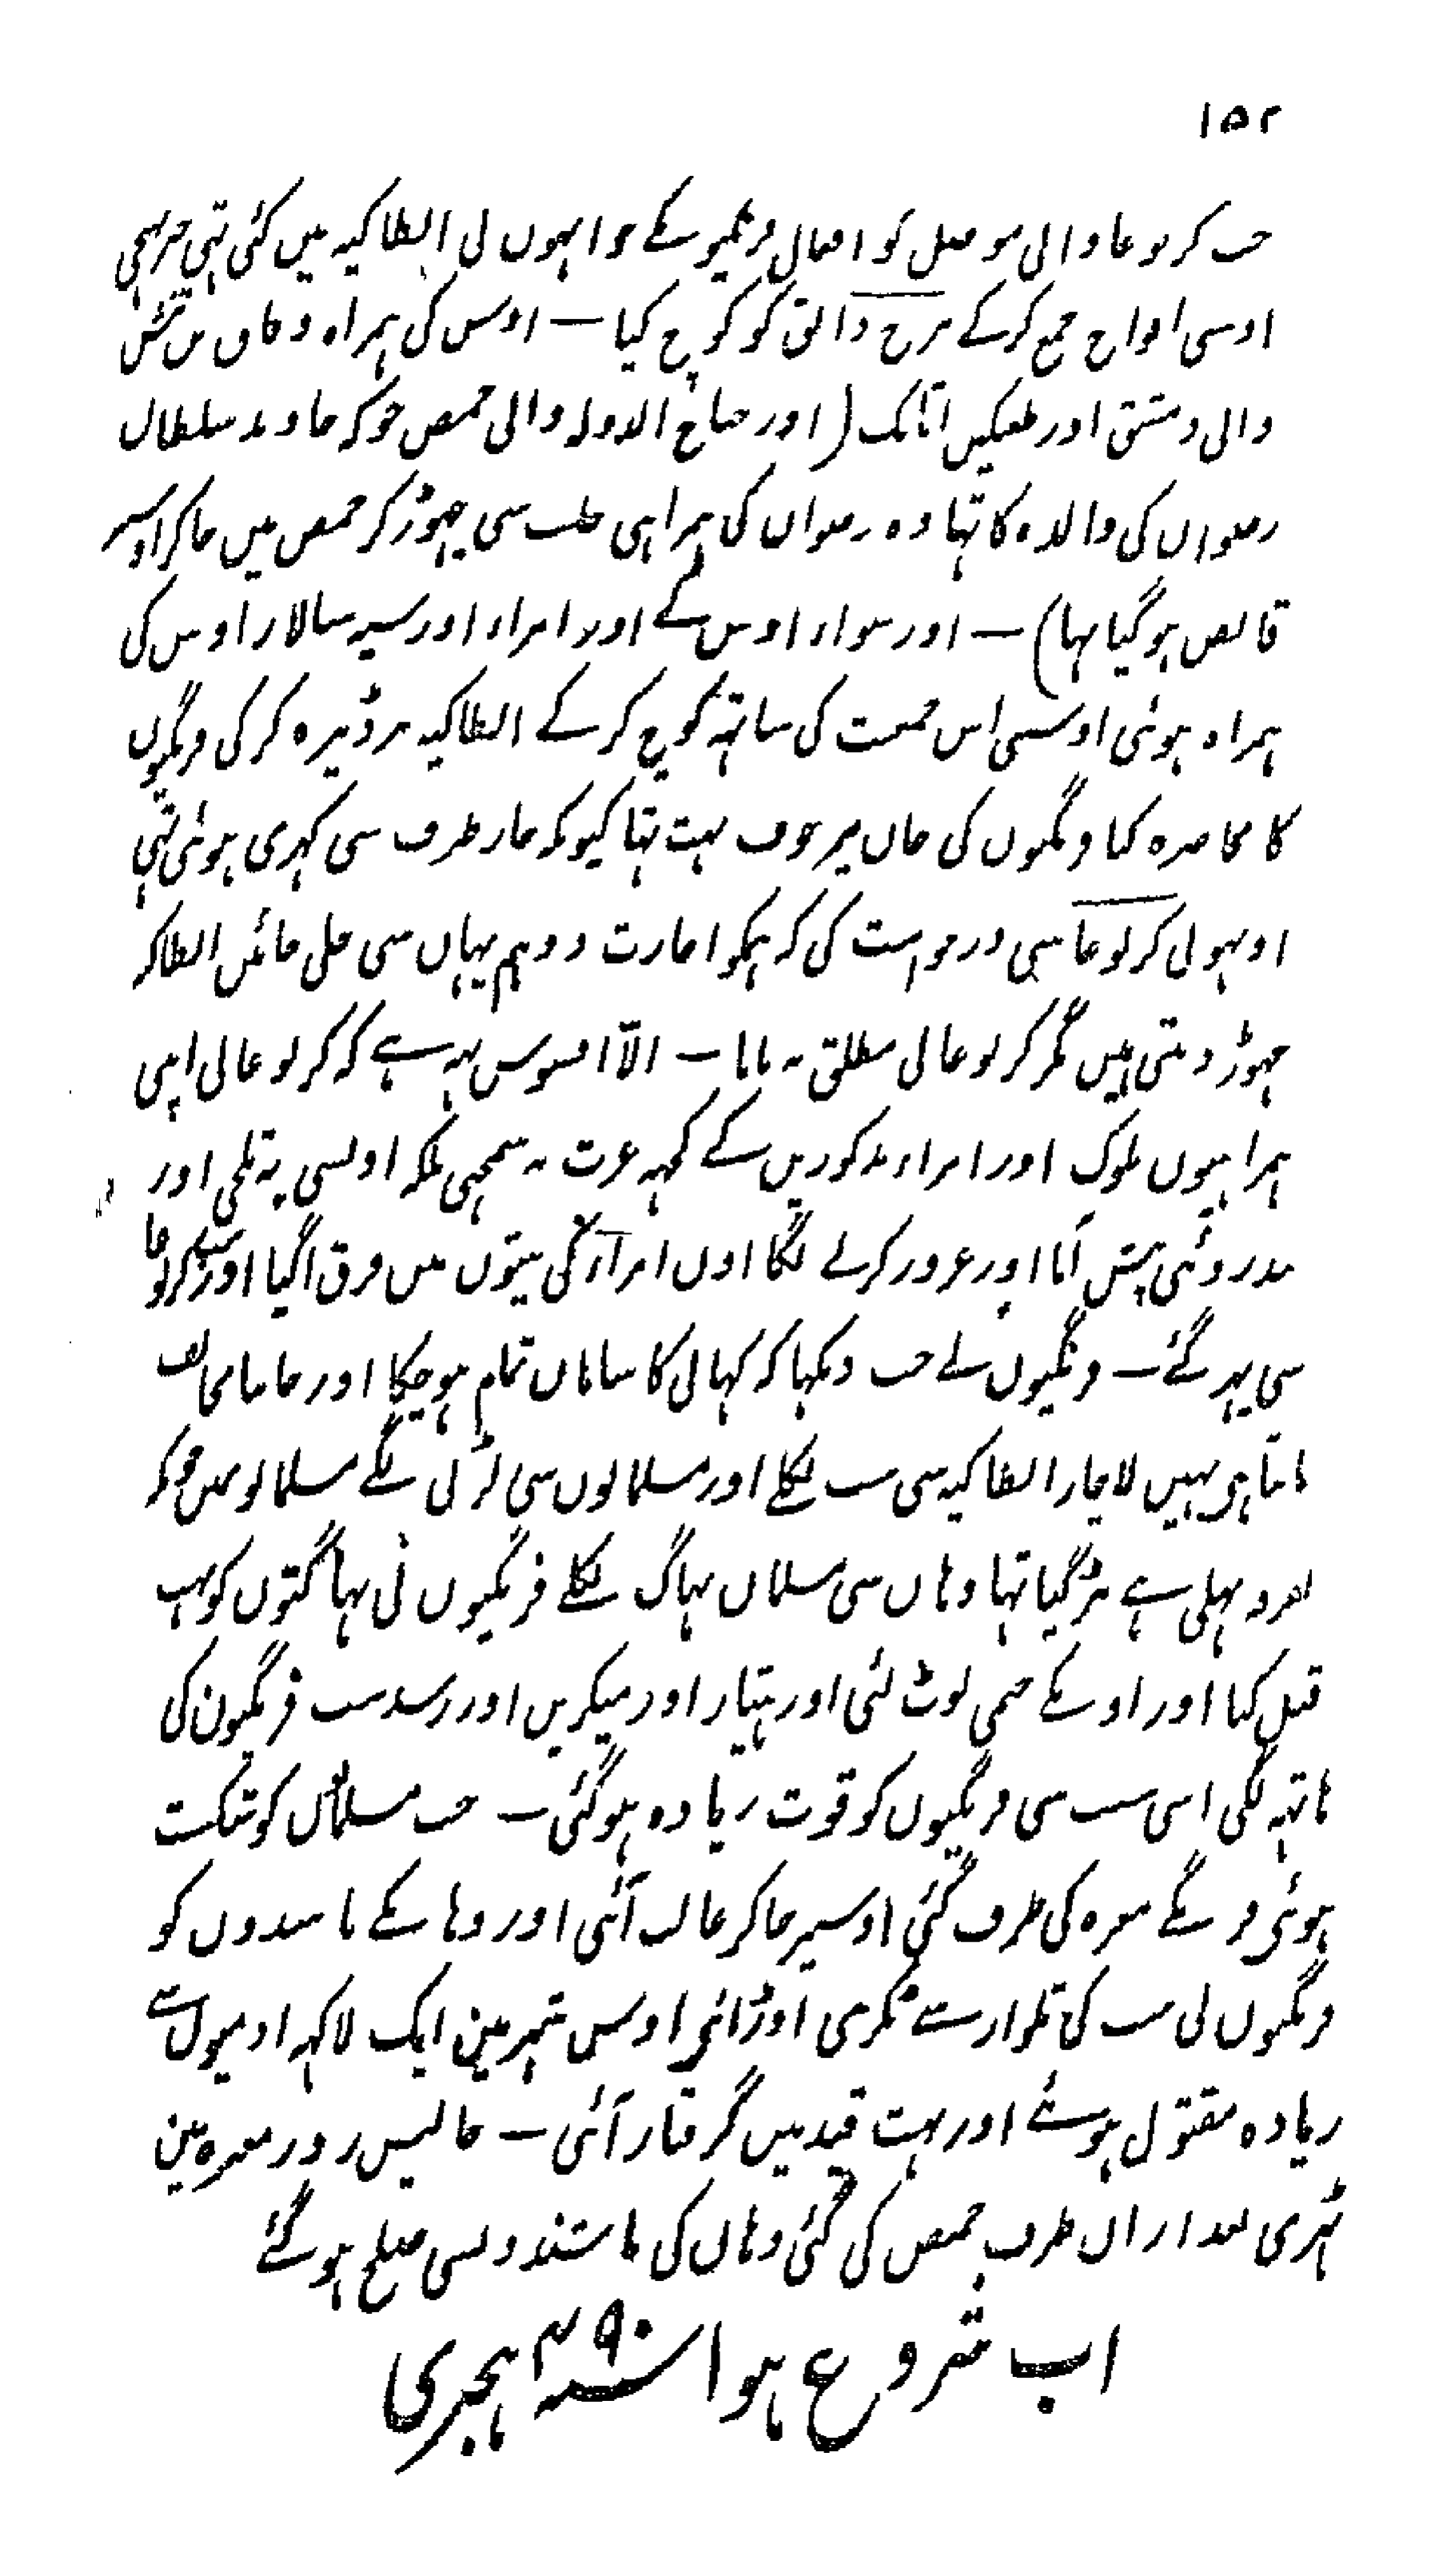 ۱۵۲
جب کربوغا والی موصل کو افعال فرنگیو نکے جو انہوں نی انطاکیہ میں کئی تہی خبر پہنچی
اوسی افواج جمع کرکے مرج دابق کو کوچ کیا — اوس کی ہمراہ دقاق بن تتش
والی دمشق اور طغتکین اتابک (اور جناح الدولہ والی حمص جو کہ خاوند سلطان
رضوان کی والدہ کا تہا وہ رضوان کی ہمراہی حلب سی چہوڑ کر حمص میں جا کر اوسپر
قابض ہو گیا تہا) — اور سواء اوس کے اور امراء اور سپہ سالار اوس کی
ہمراہ ہوئی اوسی اس جمعیت کی ساتہہ کوچ کرکے انطاکیہ پر ڈیرہ کر کی فرنگیوں
کا محاصرہ کیا فرنگیوں کی جان پر خوف بہت تہا کیونکہ چار طرف سی گہری ہوئی تہی
اونہوں نی کربوغا سی درخواست کی کہ ہمکو اجازت دو ہم یہاں سی چلی جائیں انطاکیہ
چہوڑ دیتی ہیں مگر کربوغا نی مطلق نہ مانا — الّا افسوس یہ ہے کہ کربوغا نی اپنی
ہمراہیوں ملوک اور امراء مذکورین کے کچہہ عزت نہ سمجہی بلکہ اونسی بہ تلخی اور
بدروئی پیش آتا اور غرور کرنے لگا اون امراء کی نیتوں میں فرق آگیا اور سب کربوغا
سی پہر گئے — فرنگیوں نے جب دیکہا کہ کہانی کا سامان تمام ہو چکا اور جانا مخالف
مانتا ہی نہیں لاچار انطاکیہ سی سب نکلے اور مسلمانوں سی لڑنی لگے مسلمانو میں جو کہ
تفرقہ پہلی ہے پڑ گیا تہا وہاں سی مسلمان بہاگ نکلے فرنگیوں نی بہاگتوں کو بہت
قتل کیا اور اونکے خیمی لوٹ لئی اور ہتیار اور میگزین اور رسد سب فرنگیون کی
ہاتہہ لگی اسی سبب سی فرنگیوں کو قوت زیادہ ہو گئی — جب مسلمانوں کو شکست
ہوئی فرنگے معرہ کی طرف گئی اوسپر جا کر غالب آئی اور وہا نکے باشندوں کو
فرنگیوں نی سب کی تلوار سے ٹکری اوڑائی اوس شہر مین ایک لاکہہ ادمیوں سے
زیادہ مقتول ہوئے اور بہت قید میں گرفتار آئی — چالیس روز معرہ مین
ٹہری بعد ازاں طرف حمص کی گئی وہاں کی باشندو نسی صلح ہو گئے
اب شروع ہوا سنہ ۴۹۰ ہجری